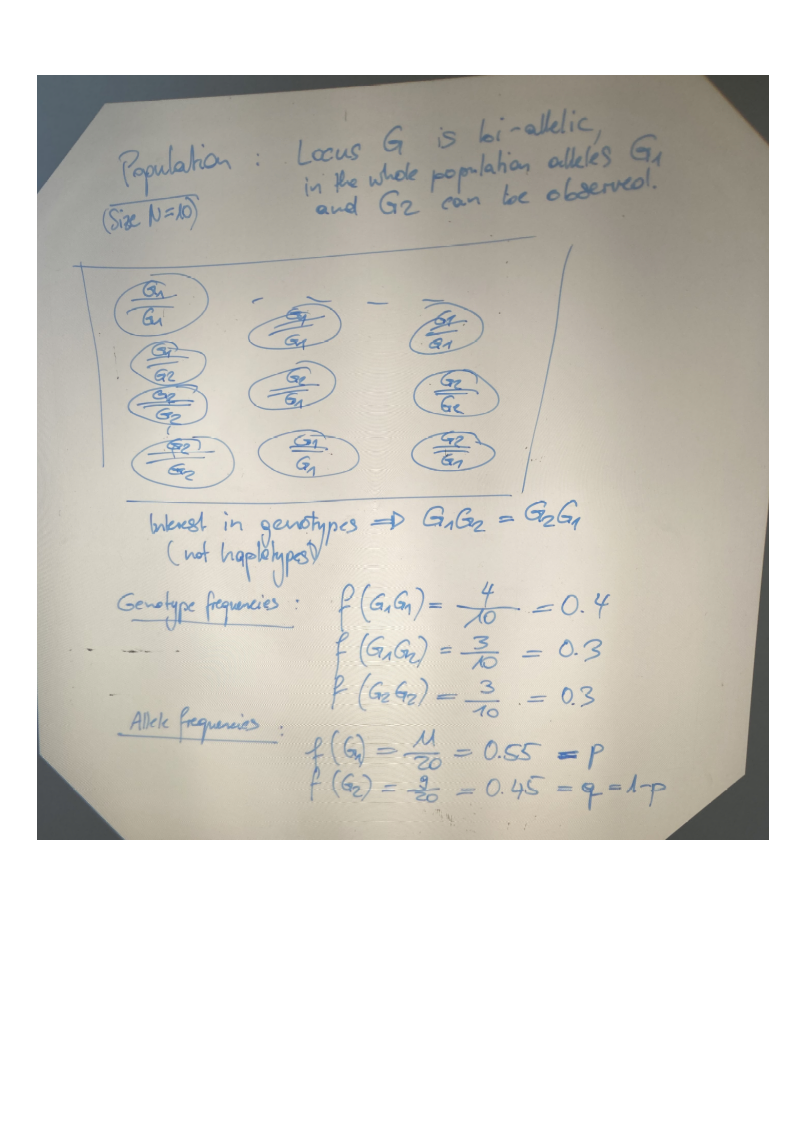 Population : Locus G is bi-allelic,
(Size N=10) in the whole population alleles G1
and G2 can be observed.
G1 G1 G1
G1 G1 G1
G1 G2 G2
G2 G1 G2
G2
G2
G2 G1 G2
G2 G1 G1
Interest in genotypes => G1G2 = G2G1
(not haplotypes)
Genotype frequencies : f(G1G1) = 4/10 = 0.4
f(G1G2) = 3/10 = 0.3
f(G2G2) = 3/10 = 0.3
Allele frequencies :
f(G1) = 11/20 = 0.55 = p
f(G2) = 9/20 = 0.45 = q = 1-p